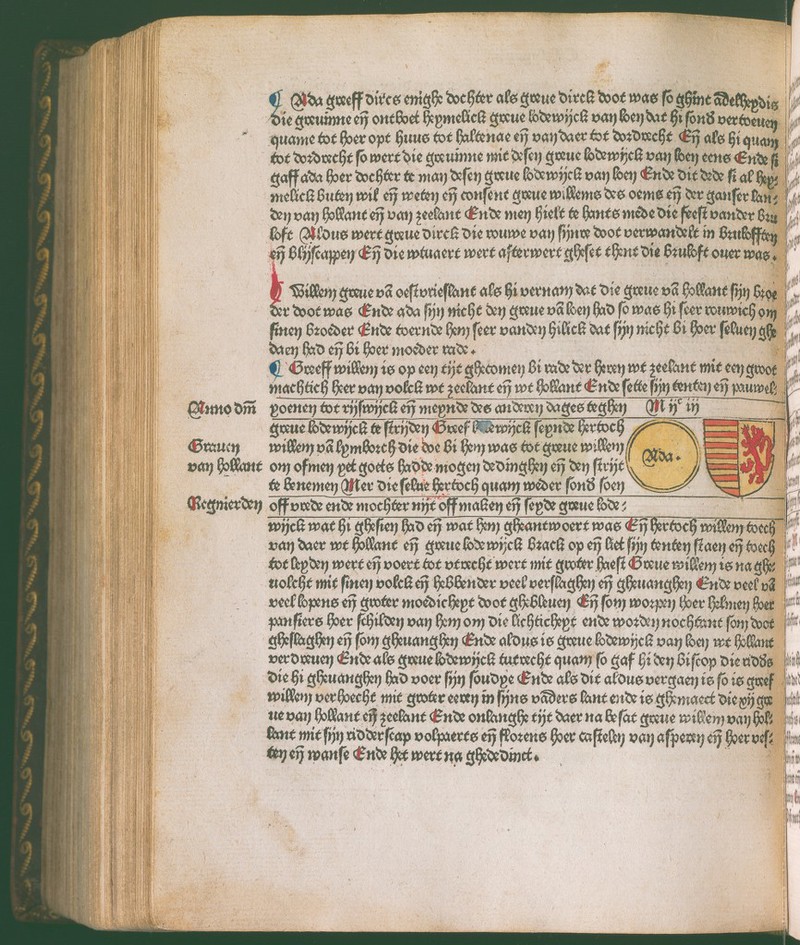 ¶ Ada greeff dircs enighe dochter als greue dirck doot was so ghinc adelheydis
die greuinne eñ ontboet heymelick greue lodewijck van loen dat hi sond̉ vertoeuen
quame tot hoer opt huus tot haltenae eñ van daer tot dordrecht Eñ als hi quam
tot dordrecht so wert die greuinne mit desen greue lodewijck van loen eens Ende si
gaff ada hoer dochter te man desen greue lodewijck van loen Ende dit dede si al hey⸗
melick buten wil eñ weten eñ consent greue willems des oems eñ der ganser lan⸗
den van hollant eñ van zeelant Ende men hielt te hants mede die feest vander bru
loft Aldus wert greue dirck die rouwe van sijnre doot verwandelt in brulofften
eñ blijscappen Eñ die wtuaert wert afterwert gheset thent die bruloft ouer was.
¶ Willem greue vā oestvrieslant als hi vernam dat die greue vā hollant sijn broe
der doot was Ende ada sijn nicht den greue vā loen had so was hi seer rouwich om
sinen broeder Ende toernde hem seer vanden hilick dat sijn nicht bi hoer seluen ghe
daen had eñ bi hoer moeder rade.
¶ Greeff willem is op een tijt ghecomen bi rade der heren wt zeelant mit een groot
machtich heer van volck wt zeelant eñ wt hollant Ende sette sijn tenten eñ pauwel⸗
Anno dm̄ poenen tot rijswijck eñ meynde des anderen dages teghen M ijᶜ iij
greue lodewijck te strijden Greef lodewijck seynde hertoch
Grauen willem vā lymborch die doe bi hem was tot greue willem
van hollant om ofmen yet goets hadde mogen dedinghen eñ den strijt Ada.
te benemen Mer die selue hertoch quam weder sond̉ soen
Regnierden off vrede ende mochter nijt off maken eñ seyde greue lode⸗
wijck wat hi ghesien had eñ wat hem gheantwoert was Eñ hertoch willem toech
van daer wt hollant eñ greue lodewijck brack op eñ liet sijn tenten staen eñ toech
tot leyden wert eñ voert tot vtrecht wert mit groter haest Greue willem is na ghe
uolcht mit sinen volck eñ hebbender veel verslaghen eñ gheuanghen Ende veel vā
veel lopens eñ groter moedicheyt doot ghebleuen Eñ som worpen hoer helmen hoer
pansiers hoer schilden van hem om die lichticheyt ende worden nochtant som doot
gheslaghen eñ som gheuanghen Ende aldus is greue lodewijck van loen wt hollant
verdreuen Ende als greue lodewijck tutrecht quam so gaf hi den biscop die ridd̉s
die hi gheuanghen had voer sijn soudye Ende als dit aldus vergaen is so is greef
willem verhoecht mit groter eeren in sijns vaders lant ende is ghemaect die xvij gre
ue van hollant eñ zeelant Ende onlanghe tijt daer na besat greue willem van hol⸗
lant mit sijn ridderscap volpaerts eñ florens hoer castelen van asperen eñ hoer ves⸗
ten eñ wanse Ende het wert na ghededinct.